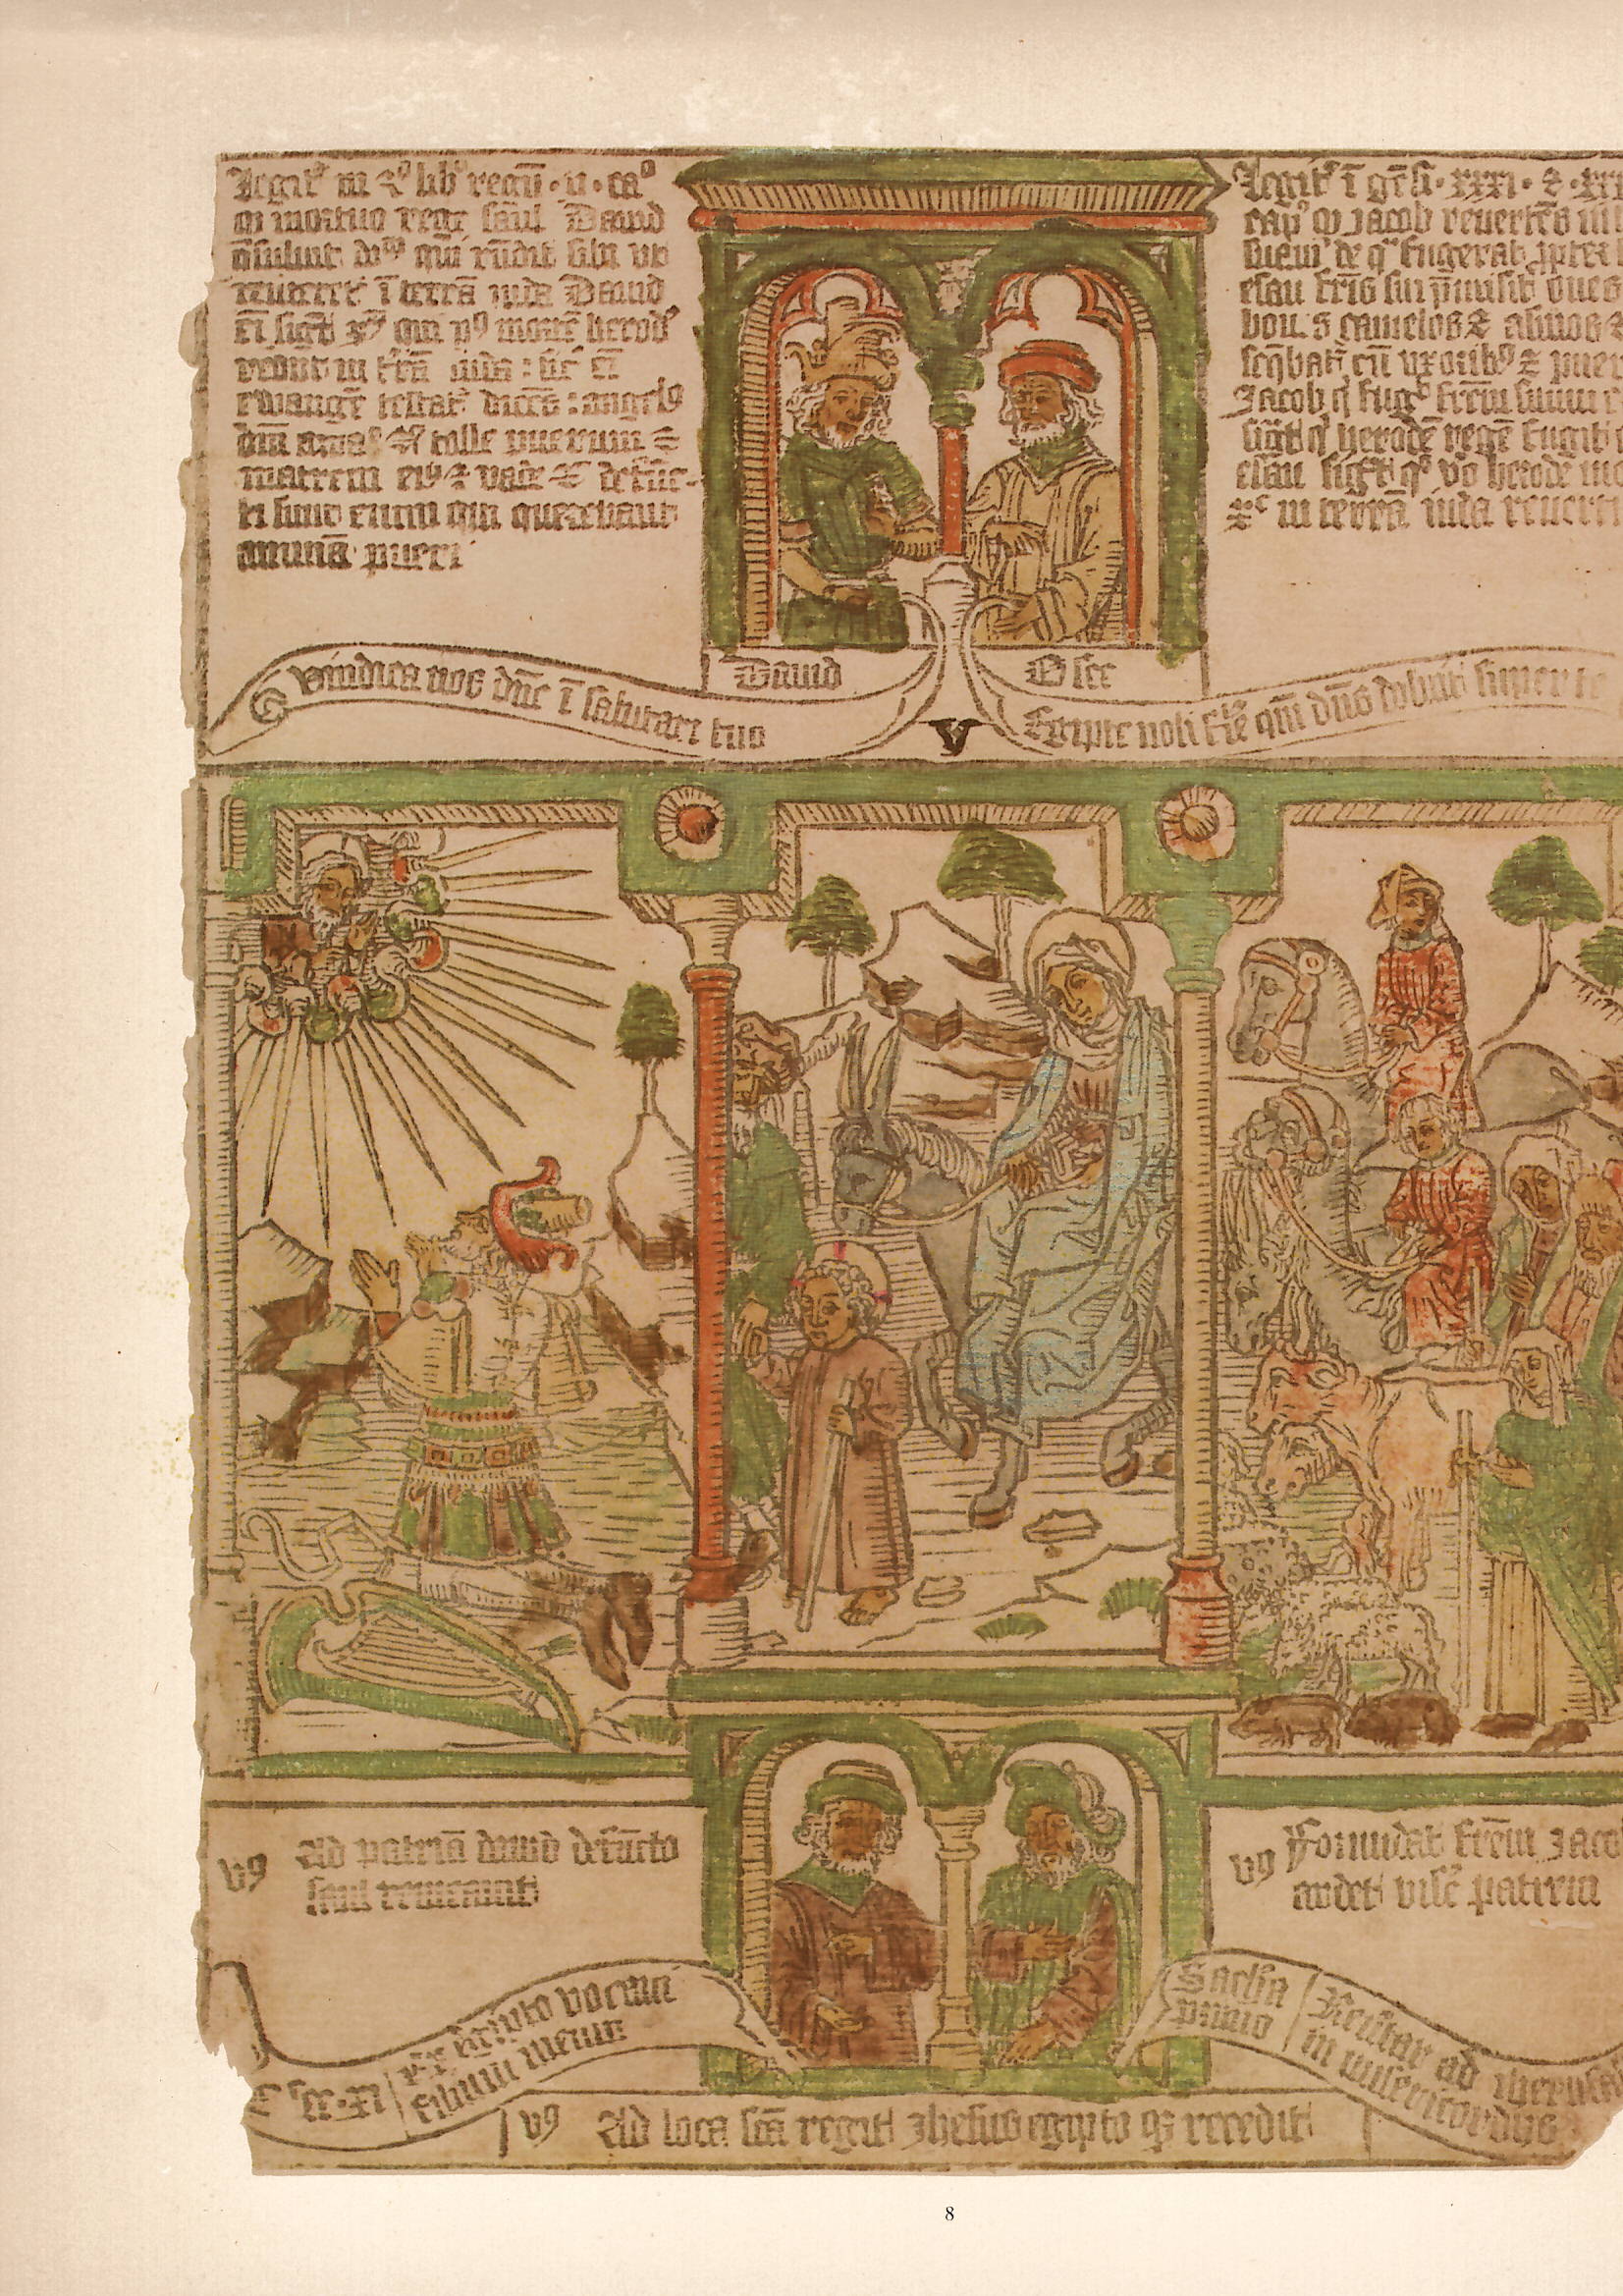 Legit᷑ in 2º libº regū · ii · caº
ꝙ mortuo rege saul Dauid
9suluit dn̄m qui rn̄dit sibi vt
reuertet᷑ ī terrā iuda Dauid
em̄ sigt xp̄m qui pº mortē herod᷑
redijt in t᷑rā iuda : sic em̄
ewangē testat᷑ dicēs : angelꝰ
dn̄i
tolle puerum ⁊
matrem eiꝰ ⁊ vade ⁊c̄ defūc-
ti sunt enim qui querebant
animā pueri
Legit᷑ ī gēsi · xxxi · ⁊ · xx
capº ꝙ Jacob reuertēs
de qª fugerat ꝓpter
esau fr̄is sui p̄misit oues
boues camelos ⁊ asinos ⁊
seq̄bat᷑ cū vxoribꝰ ⁊ puer
Jacob q̄ fugᵗ fr̄em suum
sigt qº herodē regē fugit
esau sigt qº vº herode
xᶜ in terrā iuda reuert
Dauid
Osee
Visita nos dn̄e ī salutari tuo
v
Egipte noli flē qm̄ dn̄s super te
vꝰ
Ad patriā dauid defūcto
saul remeauit
vꝰ
Formidat fr̄em Jaco
ardet visē patrem
se · xi
Ex egipto vocaui
filium meum
Sacha
primo
Reūtar ad iherusa
in misericordijs
vꝰ
Ad loca scā regit Jhesus egipto qꝫ recedit
8